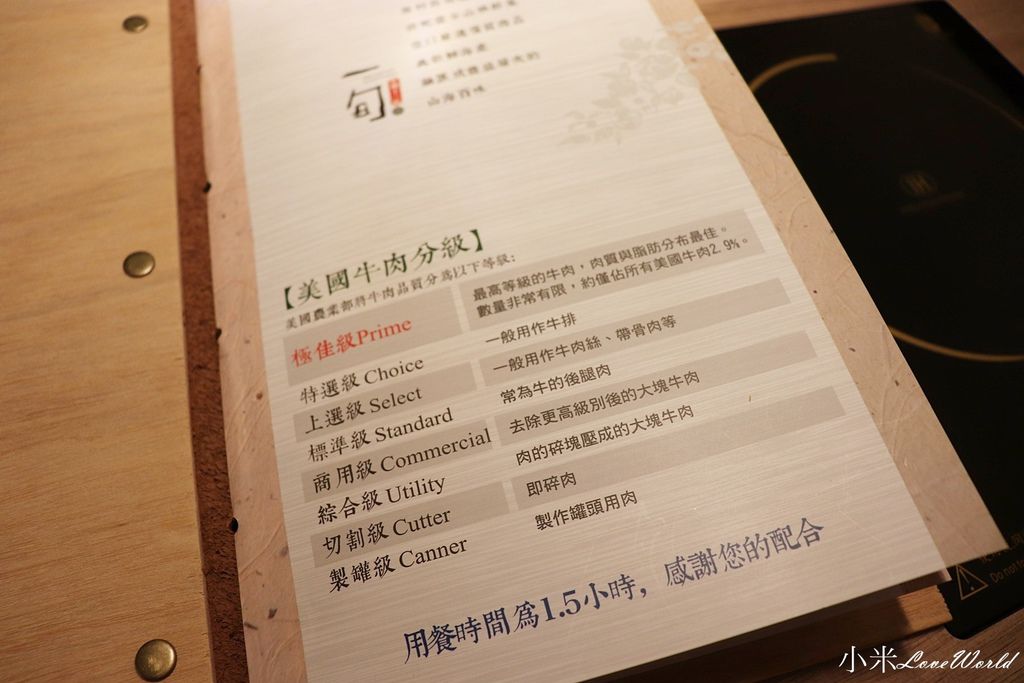 山海百味
一旬
【美國牛肉分級】
美國農業部將牛肉品質分為以下等級:
極佳級Prime
最高等級的牛肉，肉質與脂肪分布最佳。
數量非常有限，約僅佔所有美國牛肉2.9%。
特選級 Choice
一般用作牛排
上選級 Select
一般用作牛肉絲、帶骨肉等
標準級 Standard
常為牛的後腿肉
商用級 Commercial
去除更高級別後的大塊牛肉
綜合級 Utility
肉的碎塊壓成的大塊牛肉
切割級 Cutter
即碎肉
製罐級 Canner
製作罐頭用肉
用餐時間為1.5小時，感謝您的配合
Do not
小米LoveWorld